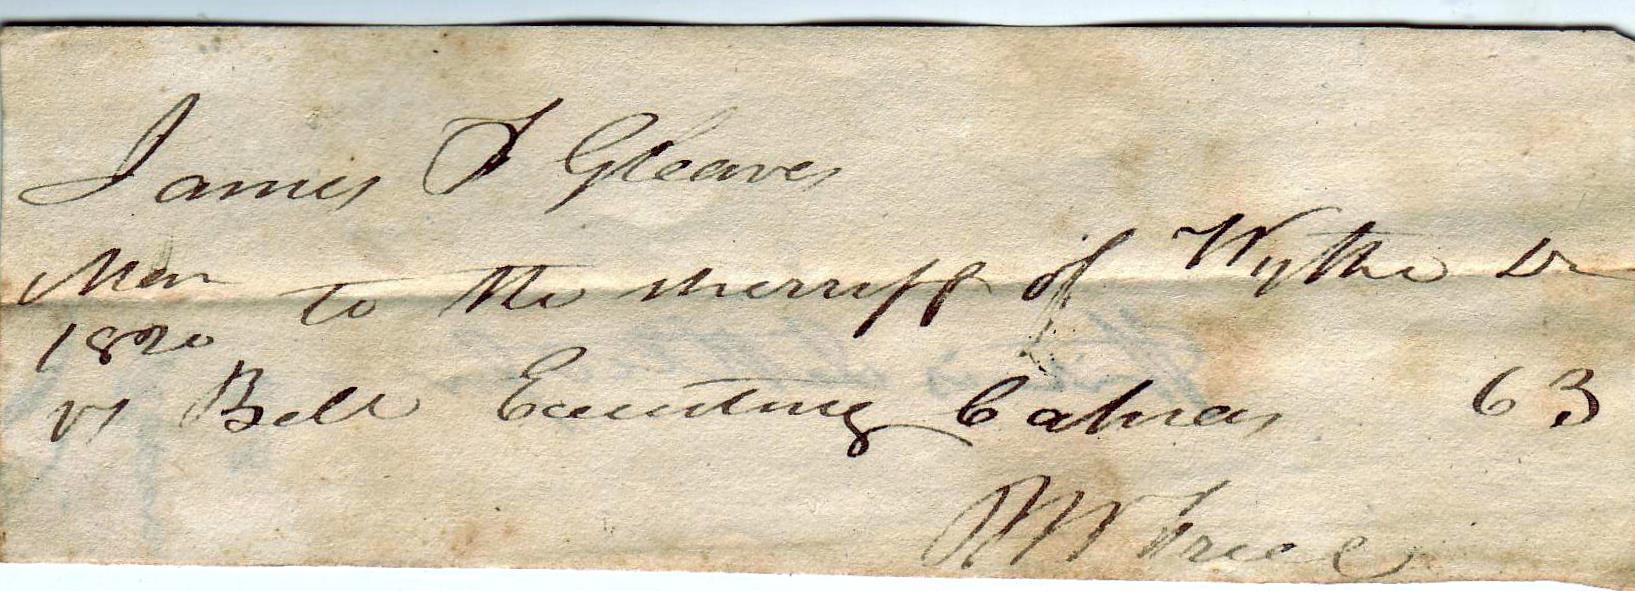 James T Gleaves
Mar to the sherriff of Wythe Dr
1820
vs Bell Executing Ca 63